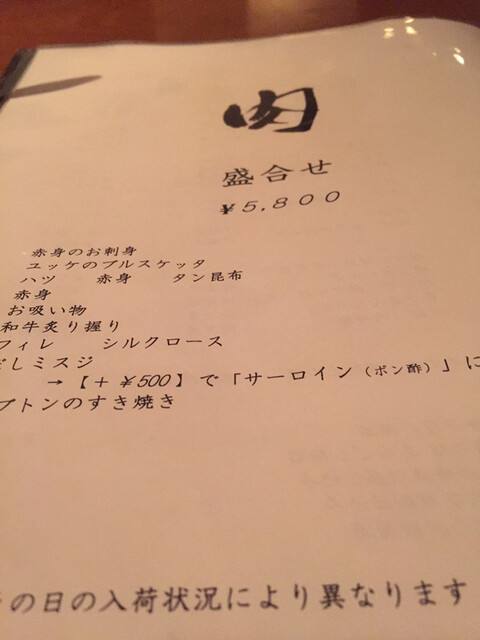 肉
盛合せ
¥5,800
赤身のお刺身
ユッケのブルスケッタ
ハツ 赤身 タン昆布
赤身
お吸い物
和牛炙り握り
フィレ シルクロース
だしミスジ
→【+ ¥500】で「サーロイン（ポン酢）」に
プトンのすき焼き
の日の入荷状況により異なります